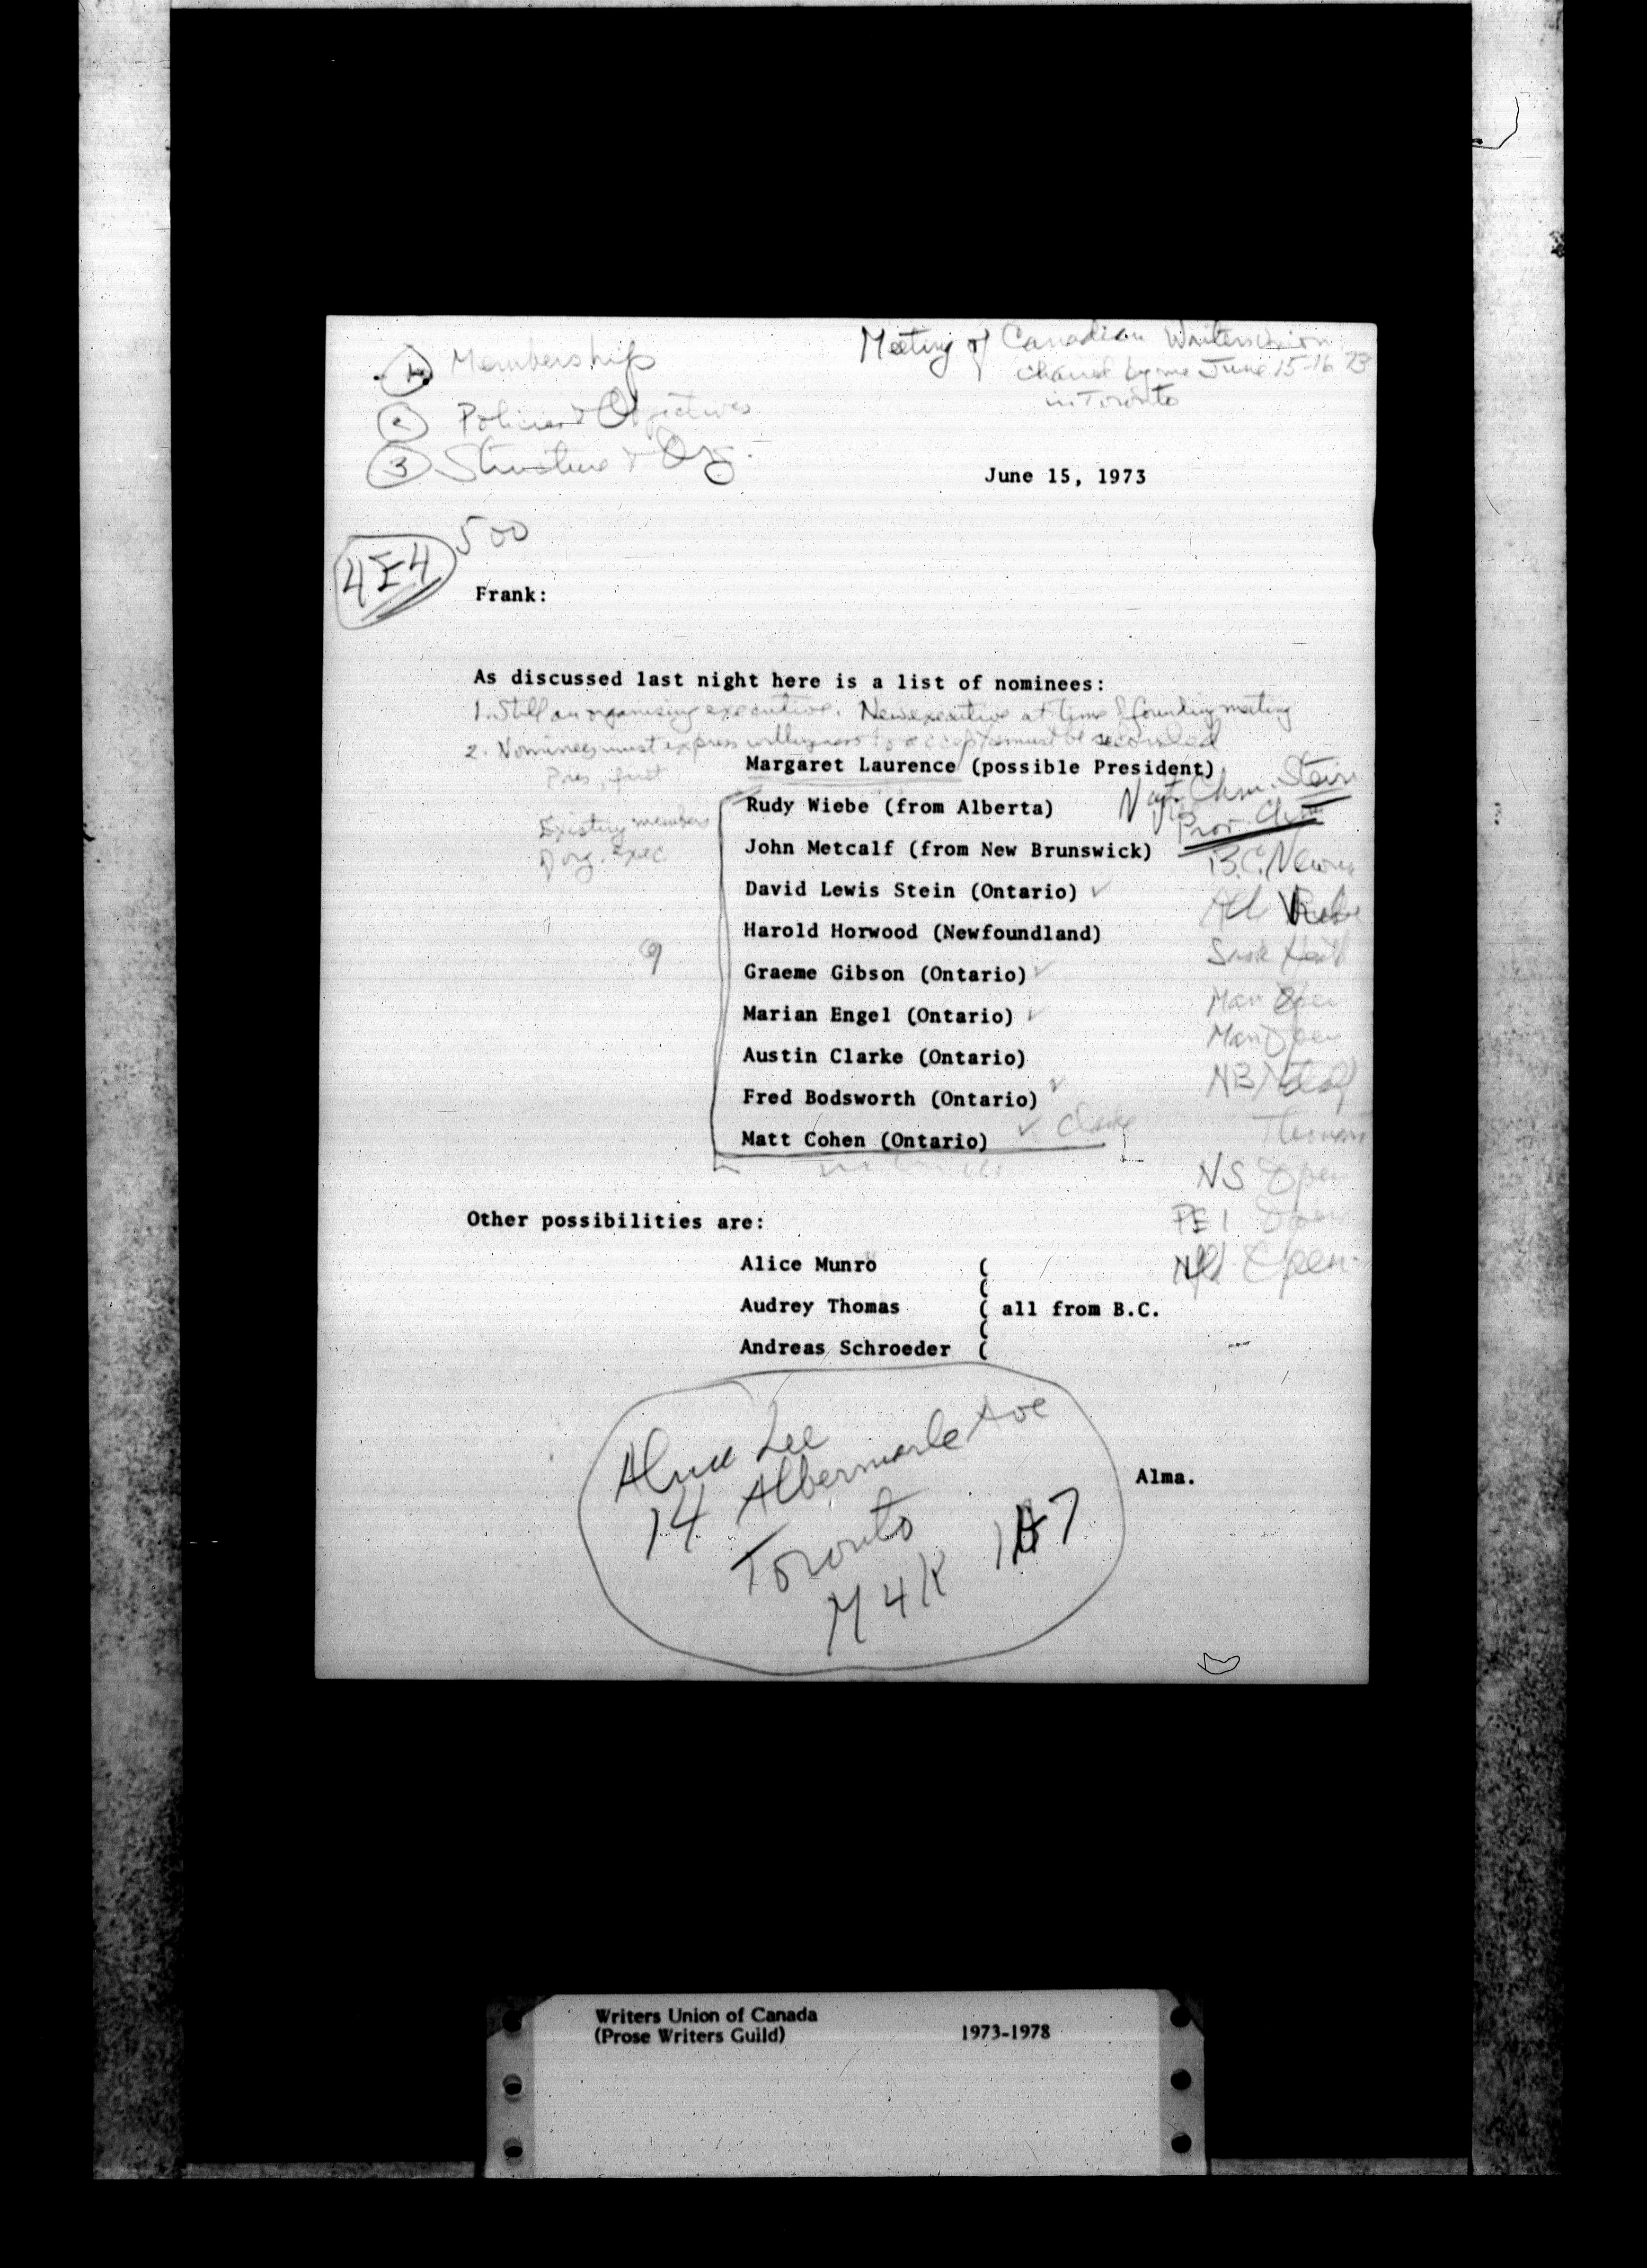 Meeting of Canadian Writers Union
chaired by me June 15-16 '73
in Toronto
1 Membership
2 Policies & Objectives
3 Structure & Org.
June 15, 1973
500
4E4
Frank:
As discussed last night here is a list of nominees:
1. Still an organising executive. New executive at time of founding meeting
2. Nominees must express willingness to accept & must be seconded
Margaret Laurence (possible President)
Pres. first
Rudy Wiebe (from Alberta)
Nat. Chm. Stein
Prov. Chm
Existing members
of org. exec.
John Metcalf (from New Brunswick)
B.C.
David Lewis Stein (Ontario) ✓
Alb Wiebe
Harold Horwood (Newfoundland)
9
Sask
Graeme Gibson (Ontario) ✓
Man Open
Marian Engel (Ontario) ✓
Man Open
Austin Clarke (Ontario)
NB Metcalf
Fred Bodsworth (Ontario) ✓
Matt Cohen (Ontario) ✓ Clarke
Thomas
NS Open
PEI Open
Nfld Open
Other possibilities are:
Alice Munro (
(
Audrey Thomas ( all from B.C.
(
Andreas Schroeder (
Alma Lee
14 Albermarle Ave
Toronto
M4K 1H7
Alma.
Writers Union of Canada
(Prose Writers Guild) 1973-1978